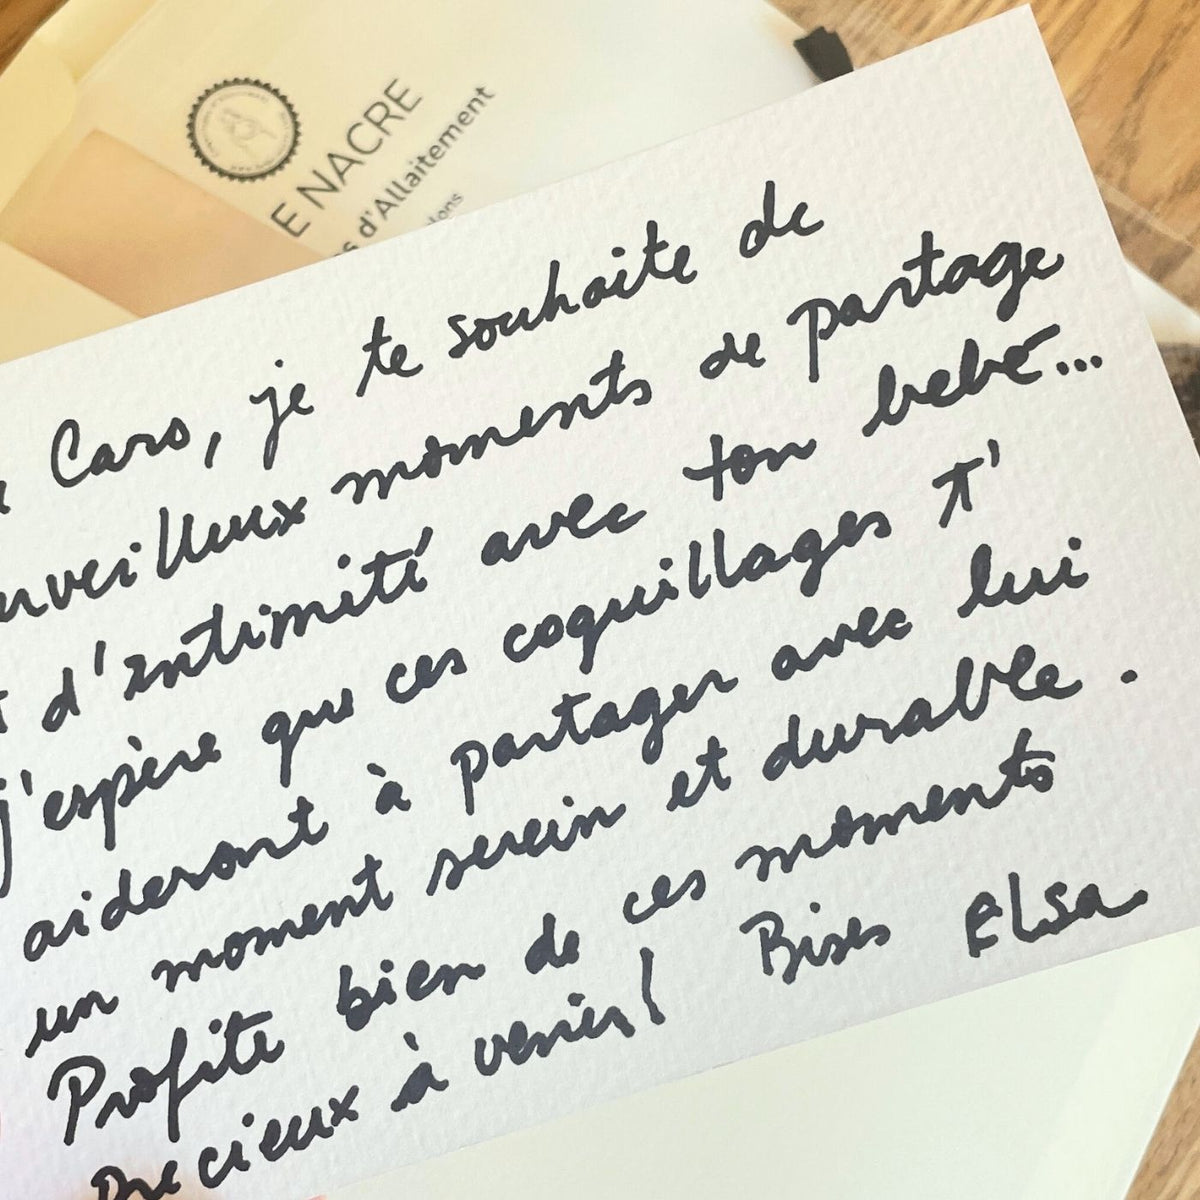 E NACRE
s d'Allaitement
Caro, je te souhaite de
rveilleux moments de partage
t d'intimité avec ton bebé...
j'espère que ces coquillages t'
aideront à partager avec lui
un moment serein et durable.
Profite bien de ces moments
precieux à venir! Bises Elsa